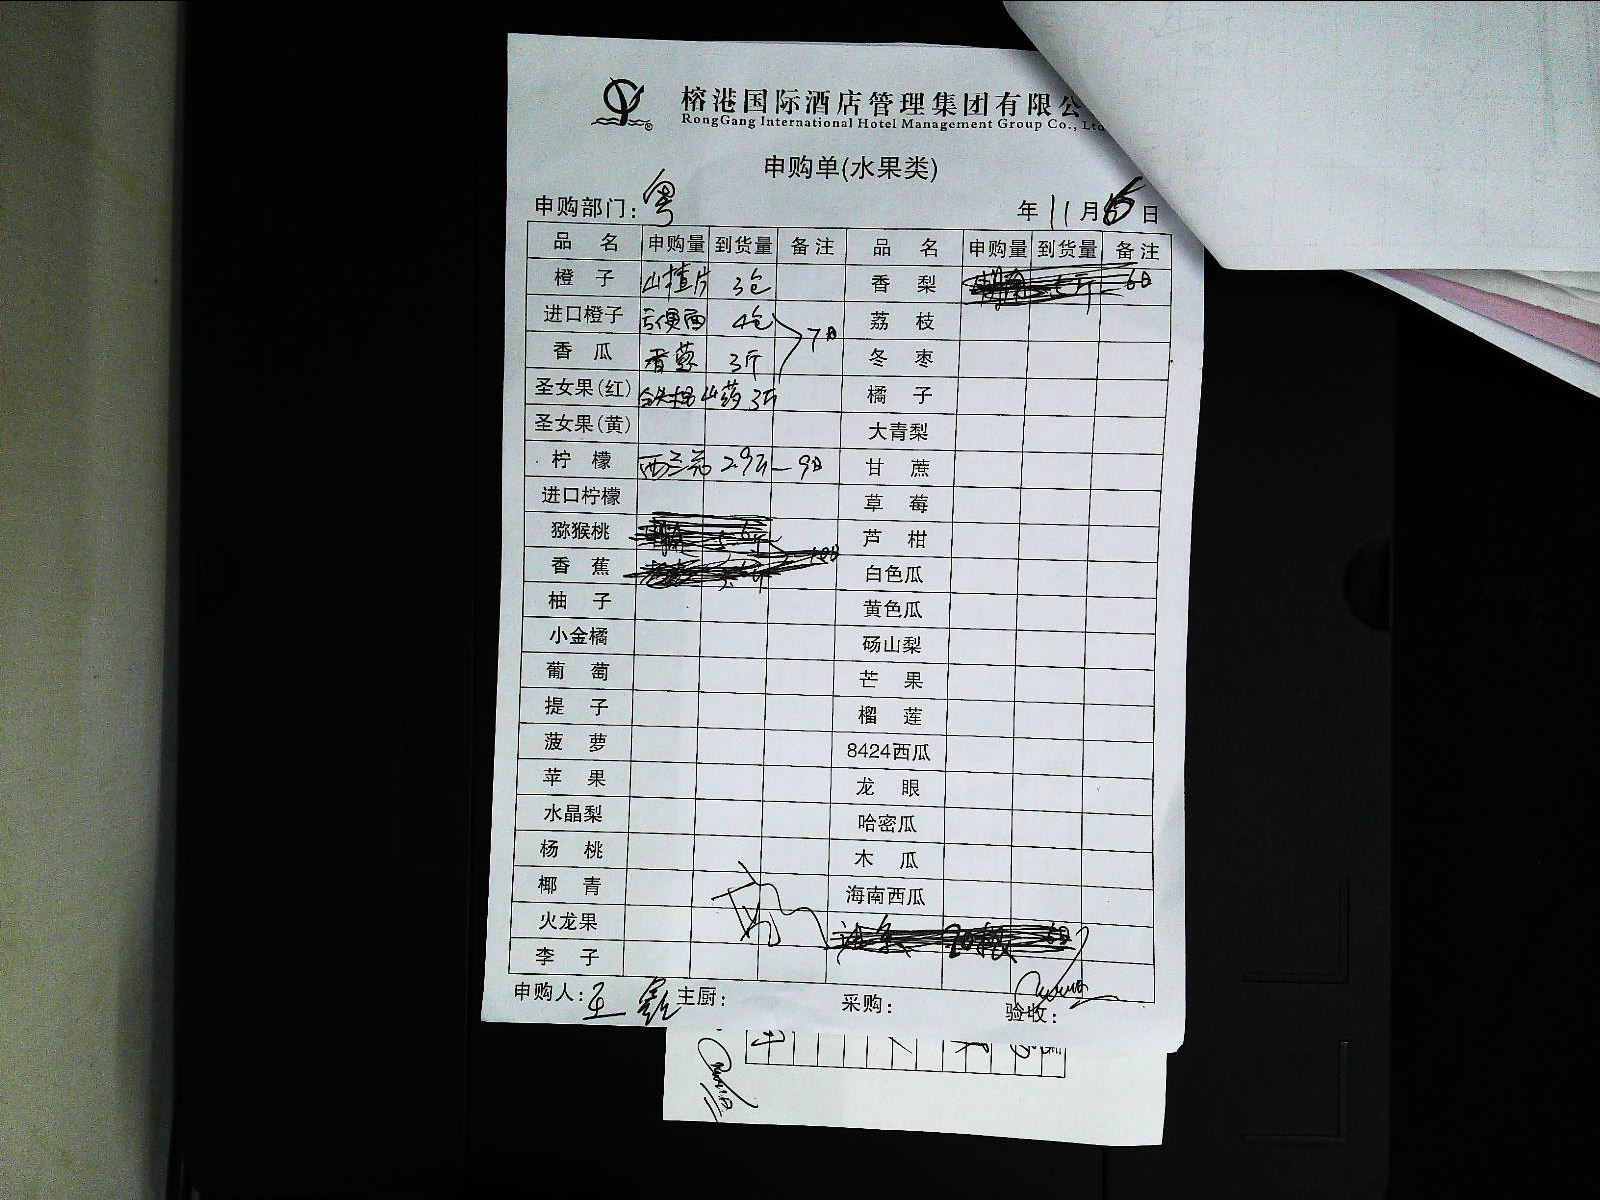 榕港国际酒店管理集团有限公
RongGang International Hotel Management Group Co., Ltd
申购单(水果类)
申购部门: 粤 年 11 月 日
品 名 申购量 到货量 备注 品 名 申购量 到货量 备注
橙 子 山楂片 3包 香 梨 6日
进口橙子 4包 7日 荔 枝
香 瓜 香葱 3斤 冬 枣
圣女果(红) 铁棍山药 3斤 橘 子
圣女果(黄) 大青梨
柠 檬 西兰花 2.9斤 9日 甘 蔗
进口柠檬 草 莓
猕猴桃 芦 柑
香 蕉 白色瓜
柚 子 黄色瓜
小金橘 砀山梨
葡 萄 芒 果
提 子 榴 莲
菠 萝 8424西瓜
苹 果 龙 眼
水晶梨 哈密瓜
杨 桃 木 瓜
椰 青 海南西瓜
火龙果 油条 20根 6日
李 子
申购人: 王 主厨: 采购: 验收: